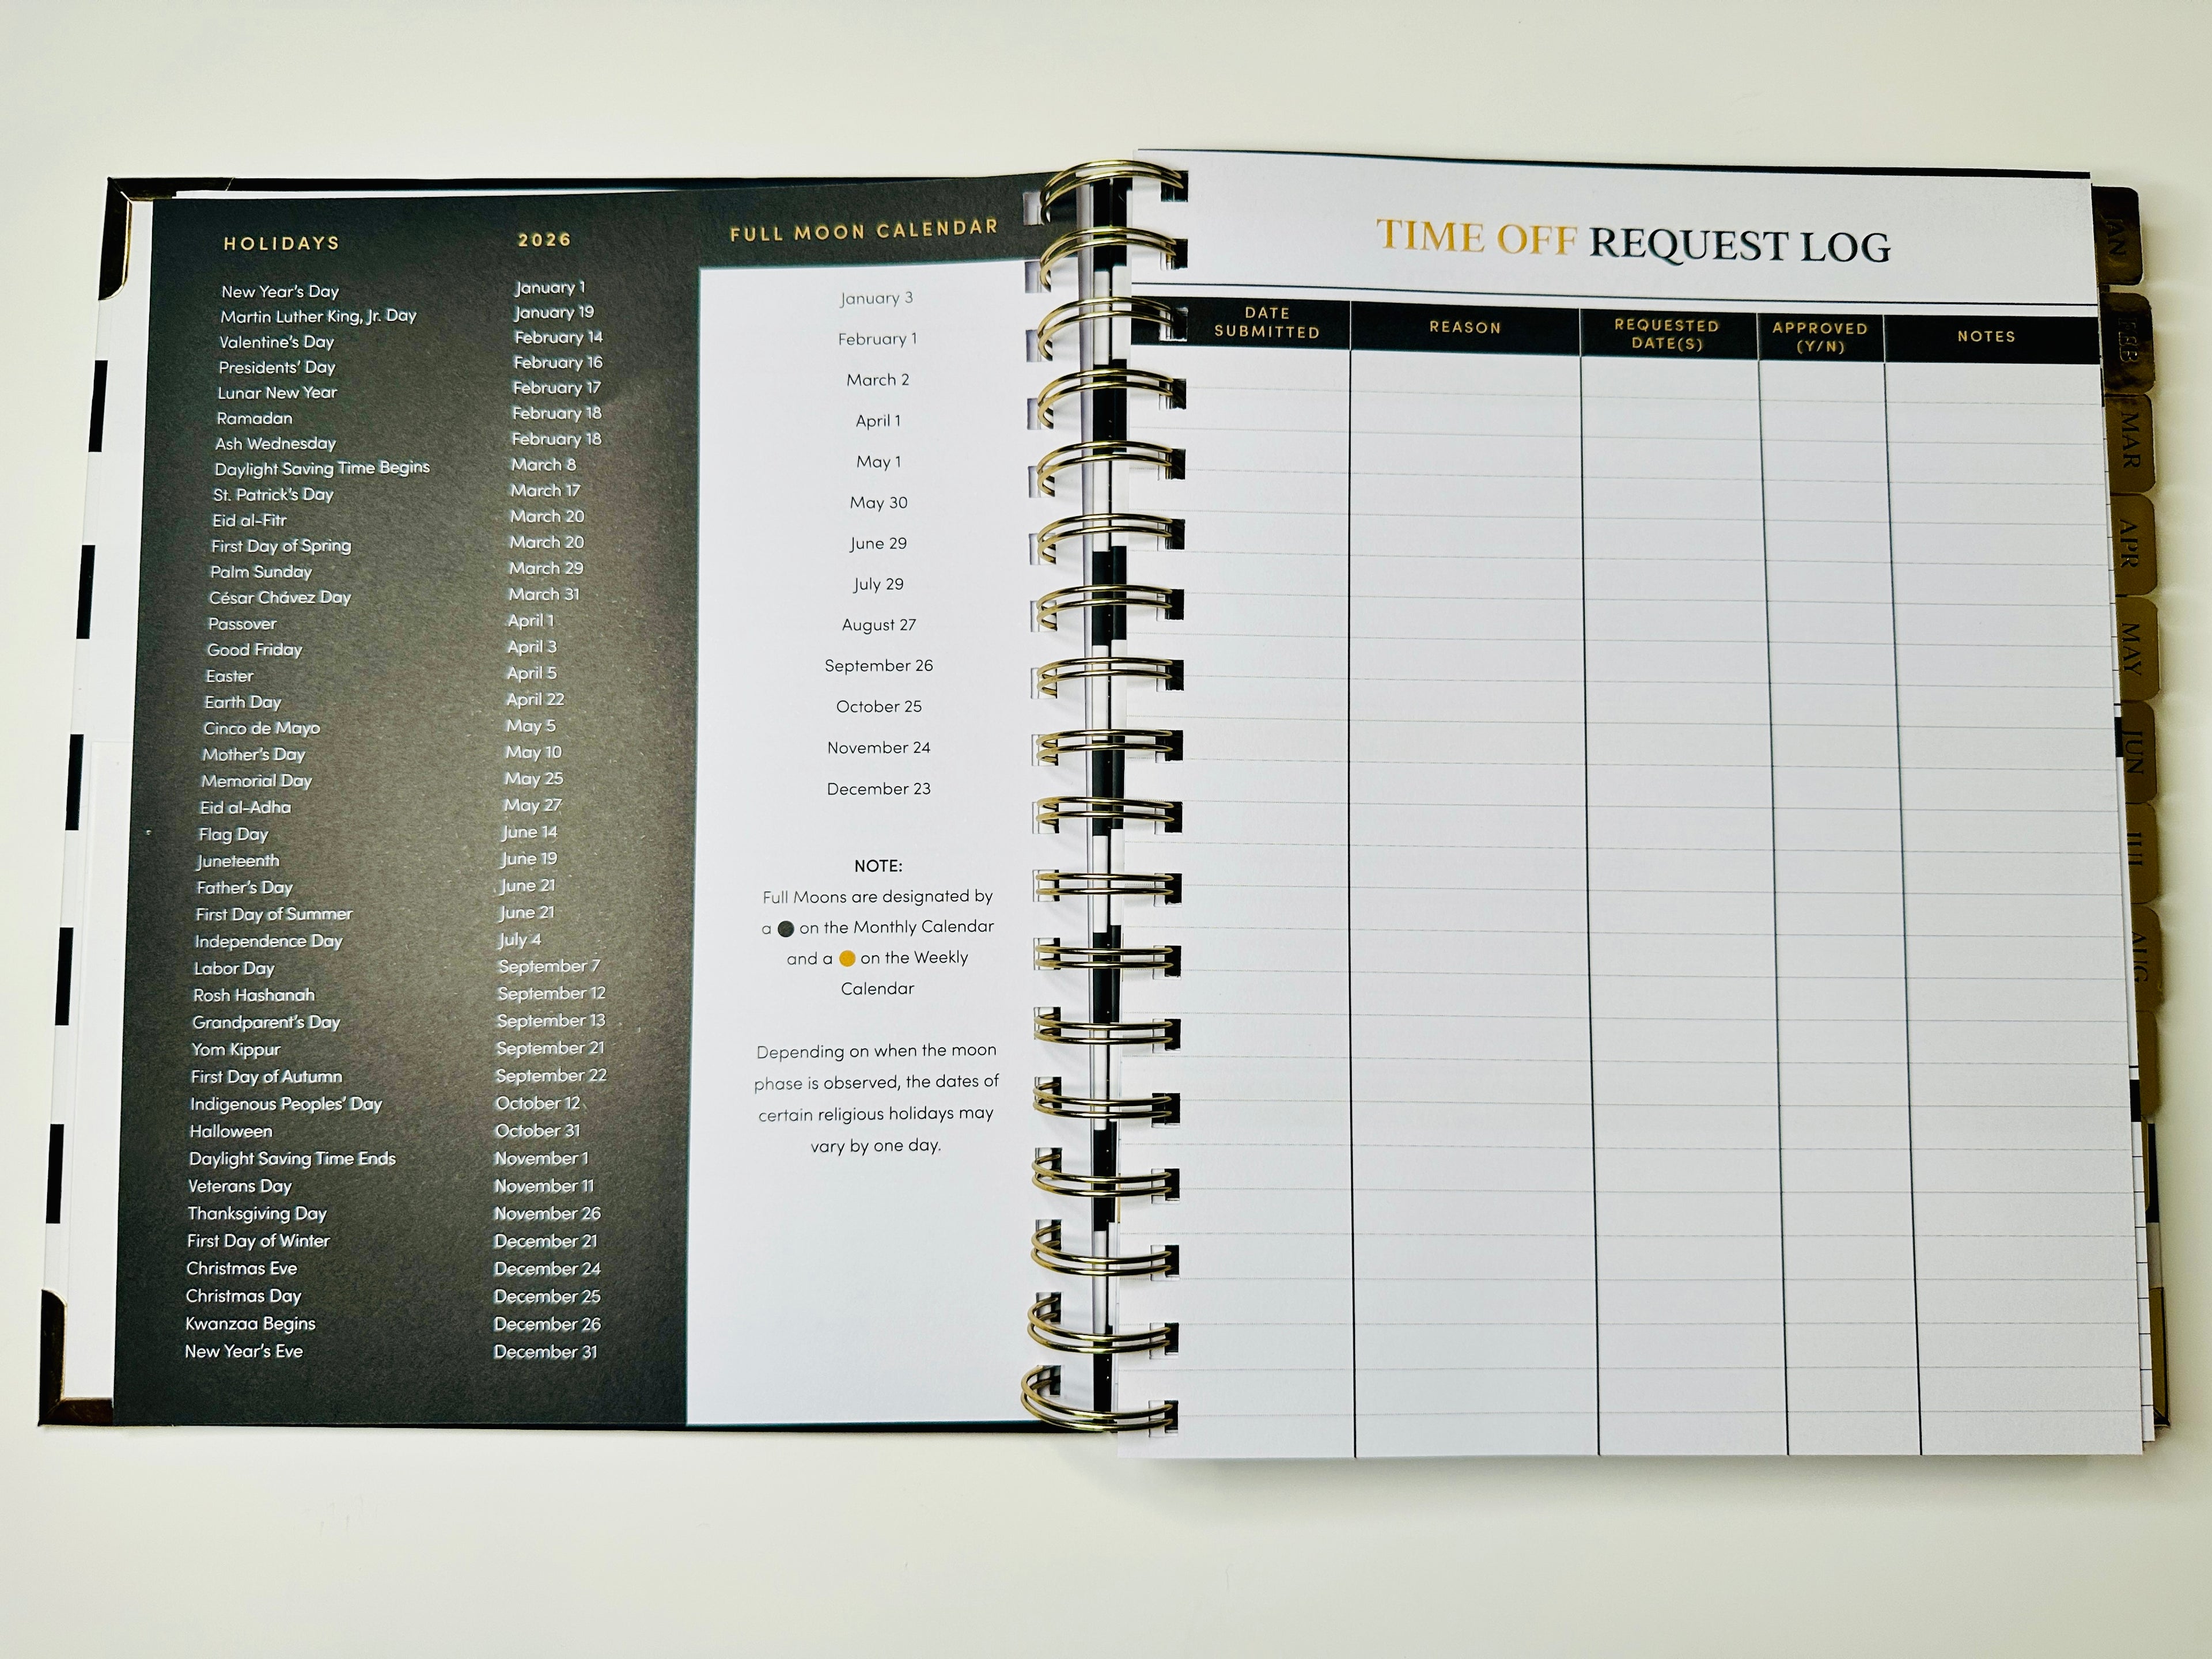 HOLIDAYS 2026
New Year's Day January 1
Martin Luther King, Jr. Day January 19
Valentine's Day February 14
Presidents' Day February 16
Lunar New Year February 17
Ramadan February 18
Ash Wednesday February 18
Daylight Saving Time Begins March 8
St. Patrick's Day March 17
Eid al-Fitr March 20
First Day of Spring March 20
Palm Sunday March 29
César Chávez Day March 31
Passover April 1
Good Friday April 3
Easter April 5
Earth Day April 22
Cinco de Mayo May 5
Mother's Day May 10
Memorial Day May 25
Eid al-Adha May 27
Flag Day June 14
Juneteenth June 19
Father's Day June 21
First Day of Summer June 21
Independence Day July 4
Labor Day September 7
Rosh Hashanah September 12
Grandparent's Day September 13
Yom Kippur September 21
First Day of Autumn September 22
Indigenous Peoples' Day October 12
Halloween October 31
Daylight Saving Time Ends November 1
Veterans Day November 11
Thanksgiving Day November 26
First Day of Winter December 21
Christmas Eve December 24
Christmas Day December 25
Kwanzaa Begins December 26
New Year's Eve December 31
FULL MOON CALENDAR
January 3
February 1
March 2
April 1
May 1
May 30
June 29
July 29
August 27
September 26
October 25
November 24
December 23
NOTE:
Full Moons are designated by
a on the Monthly Calendar
and a on the Weekly
Calendar
Depending on when the moon
phase is observed, the dates of
certain religious holidays may
vary by one day.
TIME OFF REQUEST LOG
DATE
SUBMITTED
REASON
REQUESTED
DATE(S)
APPROVED
(Y/N)
NOTES
JAN
FEB
MAR
APR
MAY
JUN
JUL
AUG